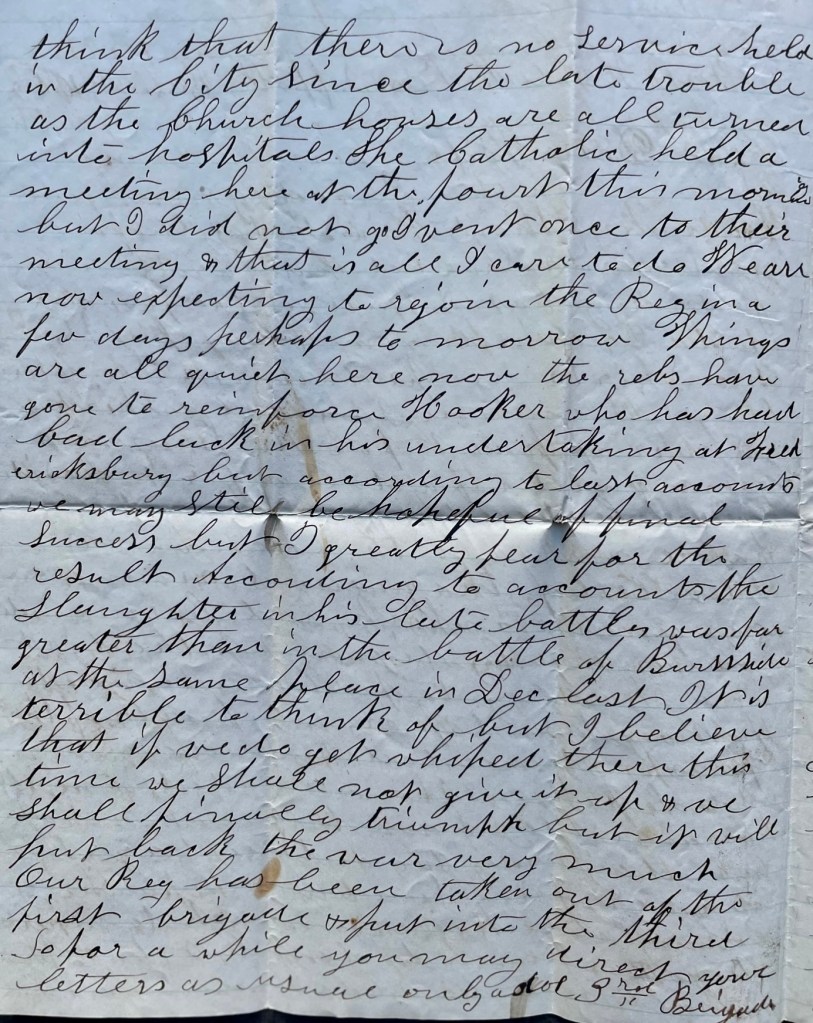 think that there is no service held
in the City since the late trouble
as the Church houses are all turned
into hospitals. The Catholic held a
meeting here at the fourt this morning
but I did not go I went once to their
meeting & that is all I care to do We are
now expecting to rejoin the Reg in a
few days perhaps to morrow Things
are all quiet here now the rebs have
gone to reinforce Hooker who has had
bad luck in his undertaking at Fred
ericksburg but according to last accounts
we may still be hopeful of final
success but I greatly fear for the
result According to accounts the
slaughter in his late battles was far
greater than in the battle of Burnside
at the same place in Dec last It is
terrible to think of but I believe
that if we do get whiped there this
time we shall not give it up & we
shall finally triumph but it will
put back the war very much
Our Reg has been taken out of the
first brigade & put into the third
So for a while you may direct your
letters as usual only add 3rd Brigade